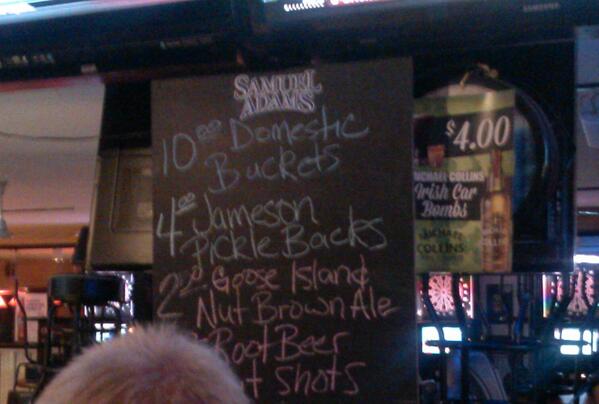 SAMSUNG
SAMUEL
ADAMS
10.00 Domestic
Buckets
4.00 Jameson
Pickle Backs
Goose Island
Nut Brown Ale
Root Beer
Shots
$4.00
MICHAEL COLLINS
Irish Car
Bombs
MICHAEL
COLLINS